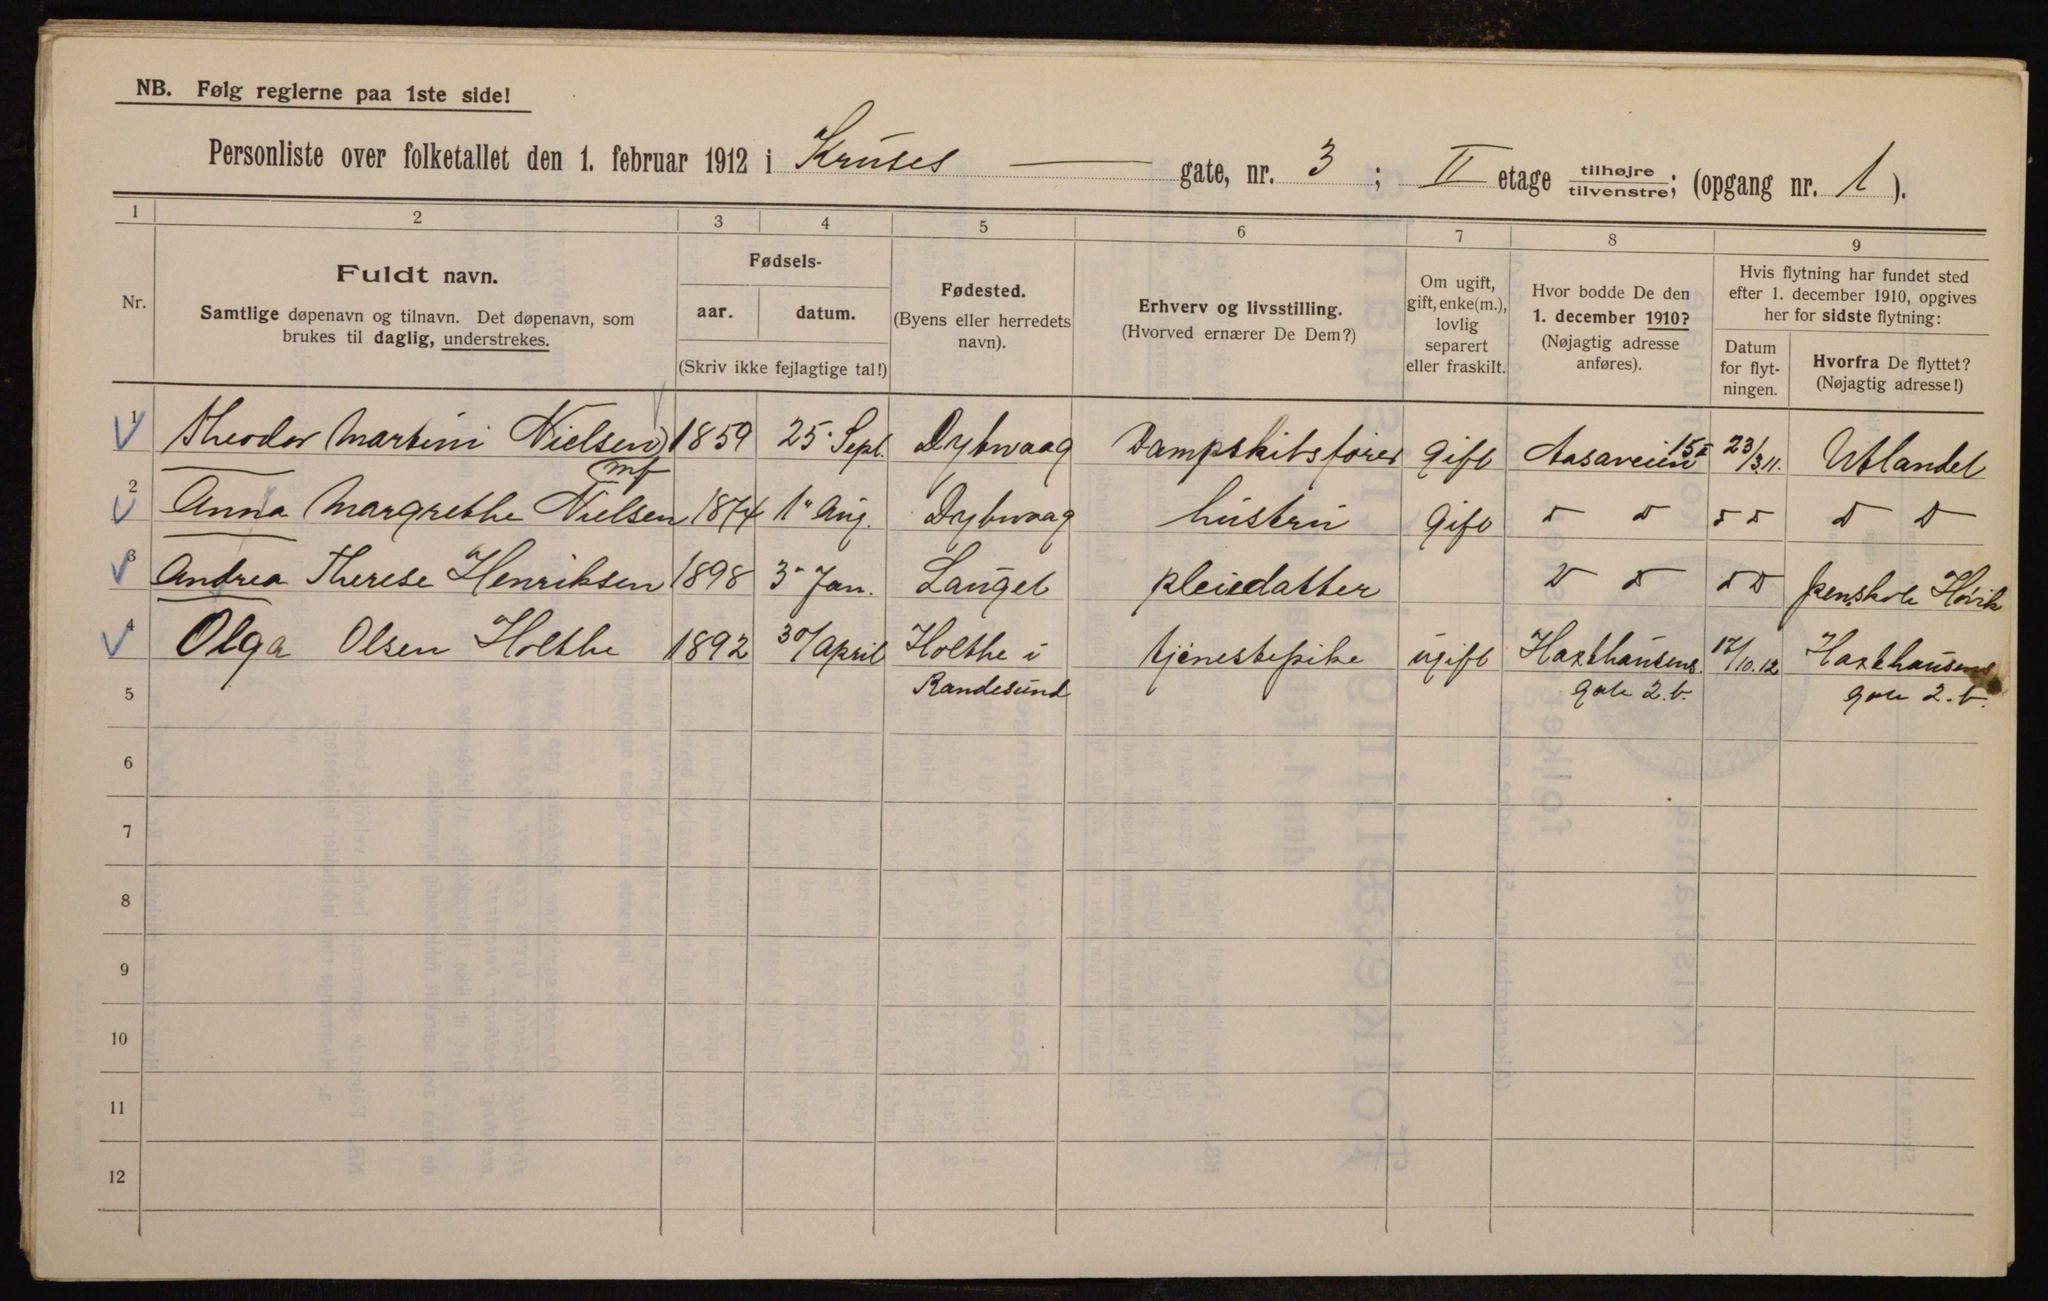 NB. Følg reglerne paa 1ste side!
Personliste over folketallet den 1. februar 1912 i Kruses gate, nr. 3 ; II etage tilhøjre tilvenstre; (opgang nr. 1 ).
1 2 3 4 5 6 7 8 9
Nr.
Fuldt navn.
Samtlige døpenavn og tilnavn. Det døpenavn, som
brukes til daglig, understrekes.
Fødsels-
aar. datum.
(Skriv ikke fejlagtige tal!)
Fødested.
(Byens eller herredets
navn).
Erhverv og livsstilling.
(Hvorved ernærer De Dem?)
Om ugift,
gift, enke(m.),
lovlig
separert
eller fraskilt.
Hvor bodde De den
1. december 1910?
(Nøjagtig adresse
anføres).
Hvis flytning har fundet sted
efter 1. december 1910, opgives
her for sidste flytning:
Datum
for flyt-
ningen.
Hvorfra De flyttet?
(Nøjagtig adresse!)
1 Theodor Martini Nielsen 1859 25. Sept. Dybvaag Dampskibsfører Gift Aasaveien 15 II 23/3 11. Utlandet
2 Anna Margrethe Nielsen mf 1874 1" Aug. Dybvaag hustru Gift D D D D D D
3 Andrea Therese Henriksen 1898 3" Jan. Lauget pleiedatter D D D D Høvik
4 Olga Olsen Holthe 1892 30/April Holthe i tjenestepike ugift Haxthausens 17/10.12 Haxthausens
5 Randesund gate 2.b. gate 2.b.
6
7
8
9
10
11
12